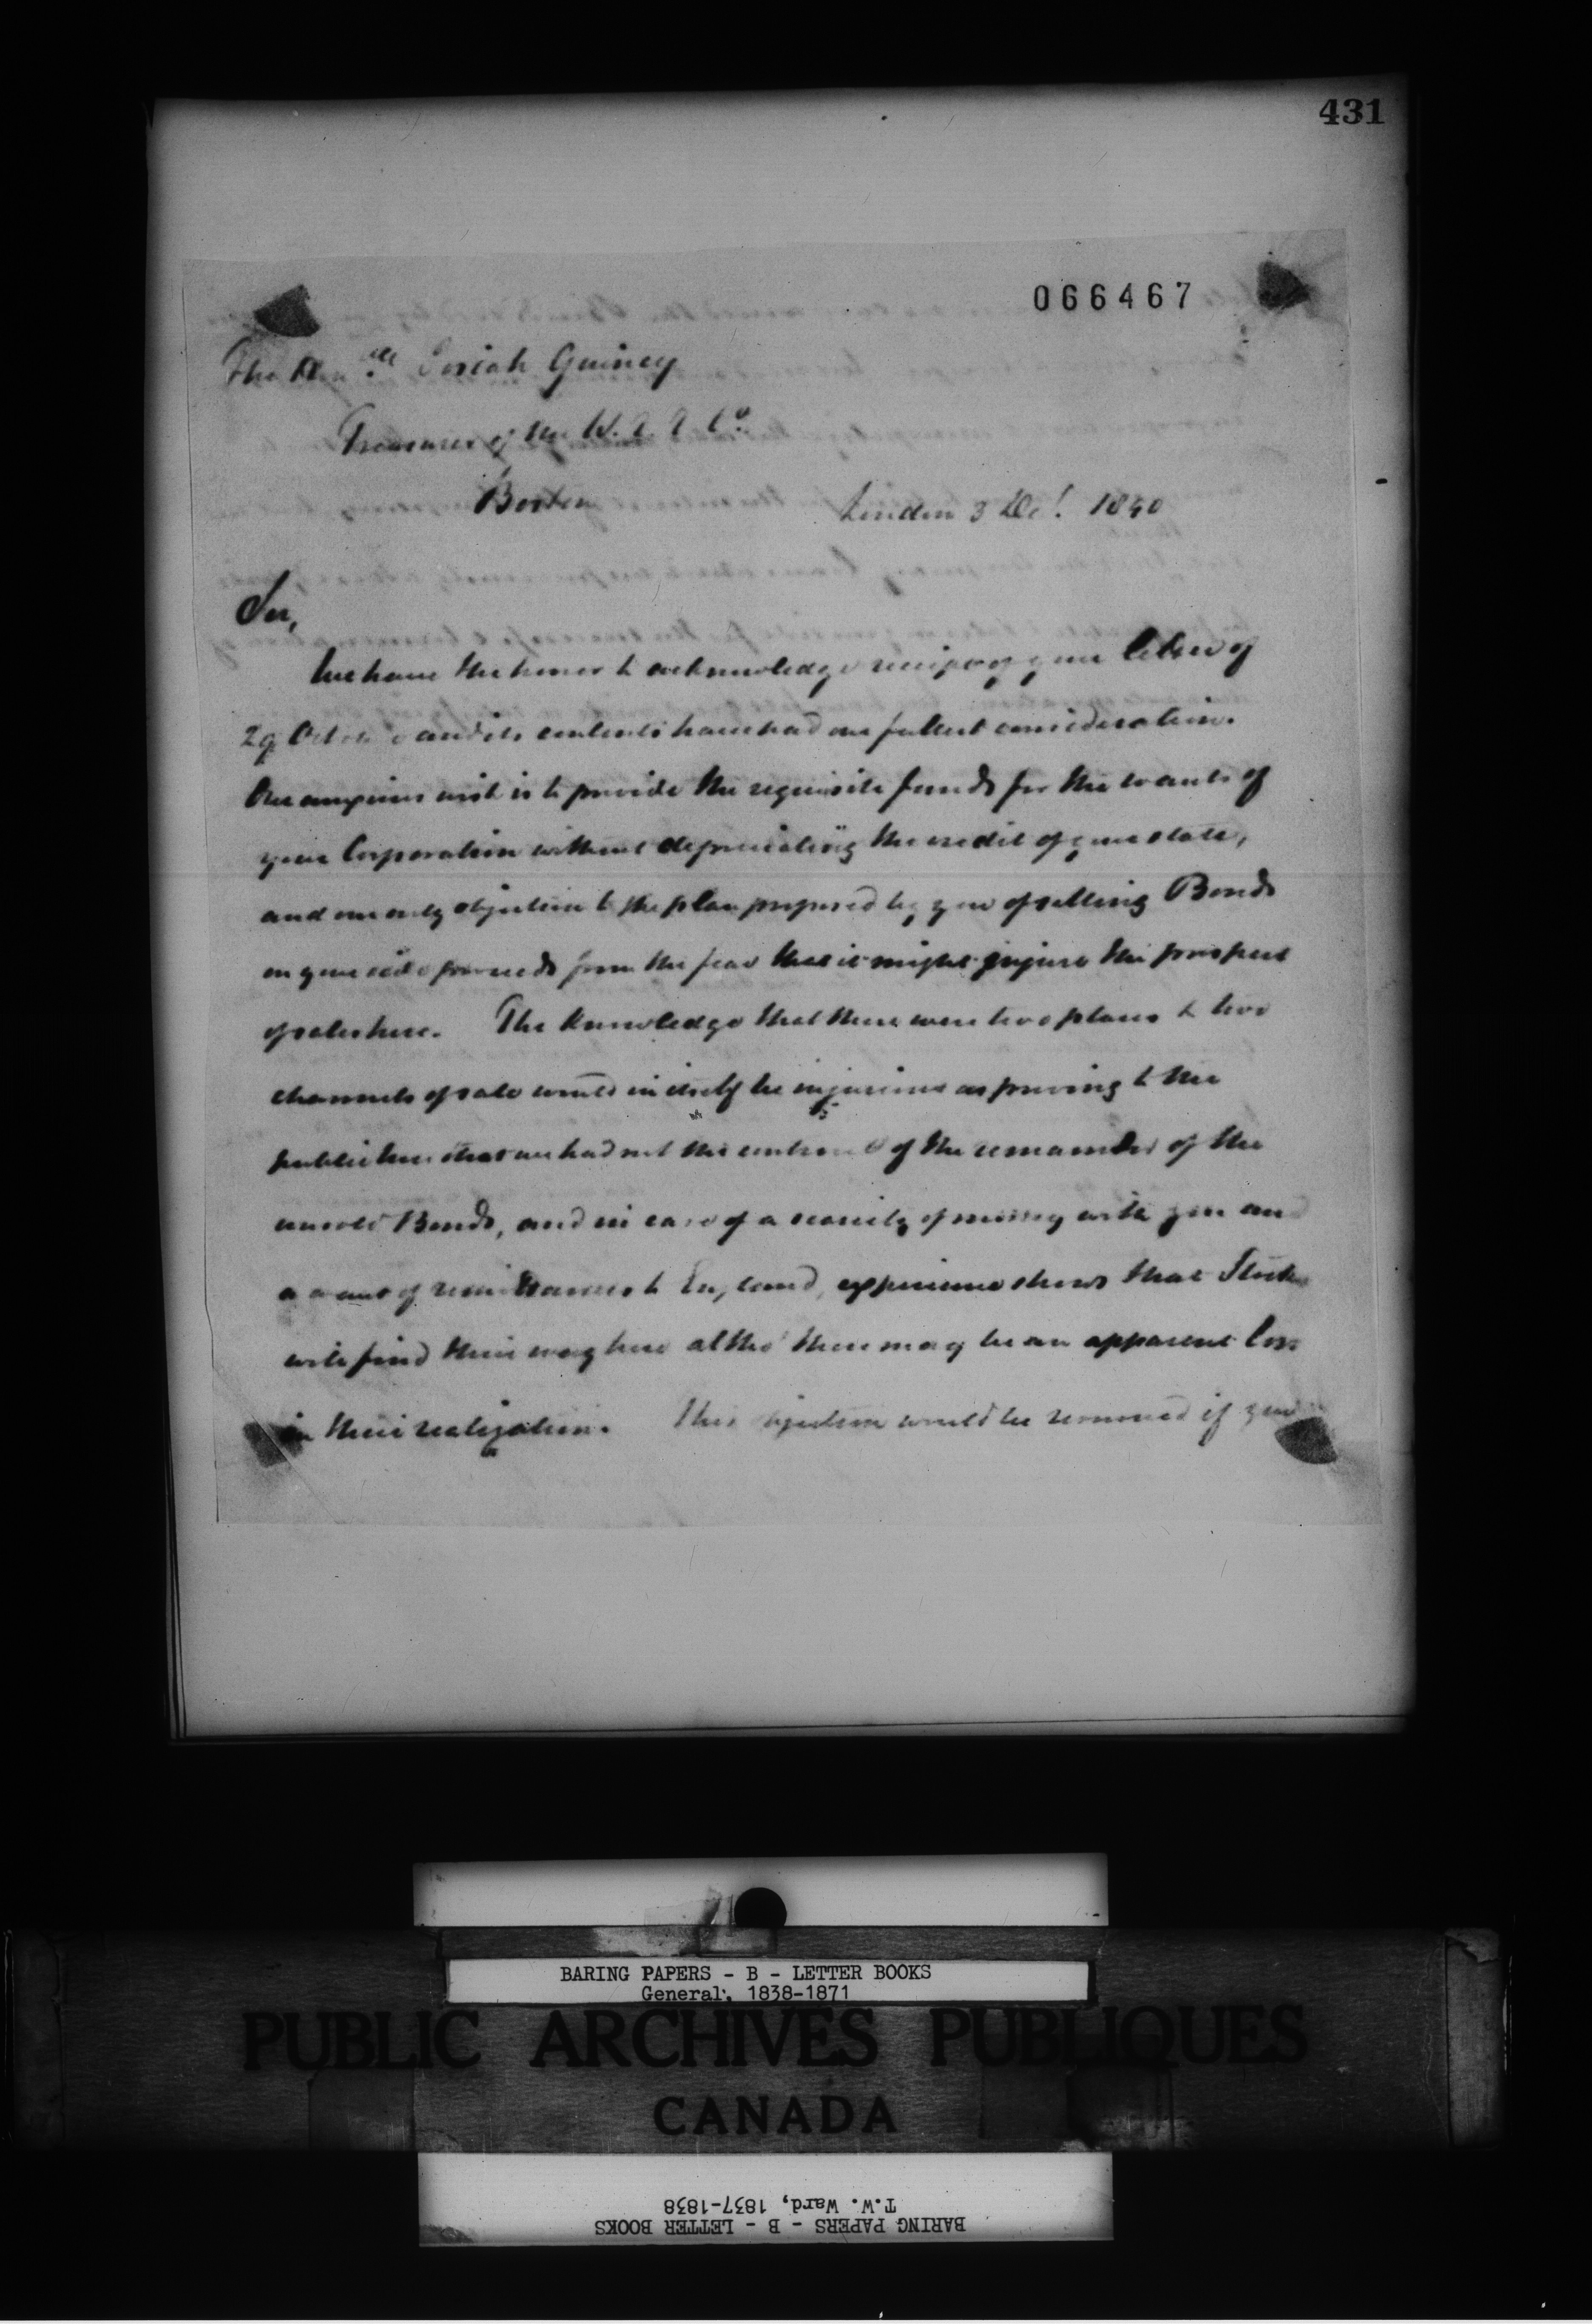 431
066467
The Hon.ble Josiah Quincy
Treasurer of the W. R. R. Co.
Boston
London 3 Dec. 1840
Sir,
We have the honor to acknowledge receipt of your letter of
29 October and its contents have had our fullest consideration.
Our anxious wish is to provide the requisite funds for the wants of
your Corporation without depreciating the credit of your state,
and our only objection to the plan proposed by you of selling Bonds
on your side proceeds from the fear that it might injure the prospect
of sales here. The knowledge that there were two plans & two
channels of sale would in itself be injurious as proving to the
public here that we had not the control of the remainder of the
unsold Bonds, and in case of a scarcity of money with you and
a want of remittances to England, experience shows that Stocks
will find their way here altho' there may be an apparent loss
in their realization. This objection would be removed if you
BARING PAPERS - B - LETTER BOOKS
General, 1838-1871
PUBLIC ARCHIVES PUBLIQUES
CANADA
T.W. Ward, 1837-1838
BARING PAPERS - B - LETTER BOOKS